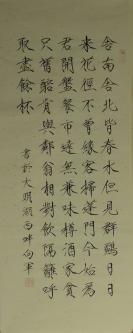 舍南舍北皆春水但見群鷗日日
來花徑不曾緣客掃蓬門今始為
君開盤餐市遠無兼味樽酒家貧
只舊醅肯與鄰翁相對飲隔籬呼
取盡餘杯
書於大明湖西畔向軍